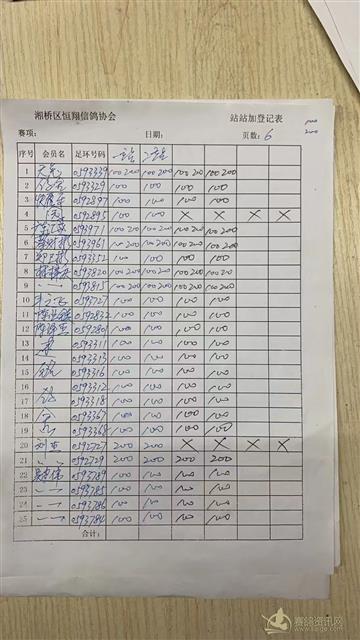 湘桥区恒翔信鸽协会 站站加登记表
赛项: 日期: 页数: 6
100
200
序号 会员名 足环号码 一站 二站
1 0593339 100 200 100 200 100 200 100 200
2 0593329 100 100 100 100
3 0592897 100 100 100 100
4 0592895 100 100 × × × ×
5 0593971 100 200 100 200 100 200 100 200
6 0593961 100 200 100 200 100 200 100 200
7 0593352 100 100 100 100
8 0593820 100 200 100 200 100 200 100 200
9 0593815 100 200 100 200 100 200 100 200
10 0593727 100 100 100 100
11 0592832 100 100 100 100
12 0592801 100 100 100 100
13 0593311 100 100 100 100
14 0593313 100 100 100 100
15 0593316 100 100 100 100
16 0593312 100 100 100 100
17 0593318 100 100 100 100
18 0593367 100 100 100 100
19 0593368 100 100 100 100
20 0592727 200 200 × × × ×
21 0592729 200 200 200 200
22 0593789 100 100 100 100
23 0593785 100 100 100 100
24 0593786 100 100 100 100
25 0593784 100 100 100 100
合计:
赛鸽资讯网
www.saige.com